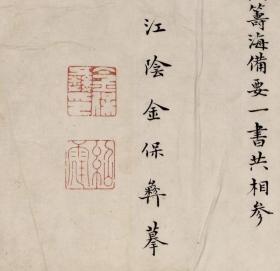 籌海備要一書共相參
江陰金保彝摹